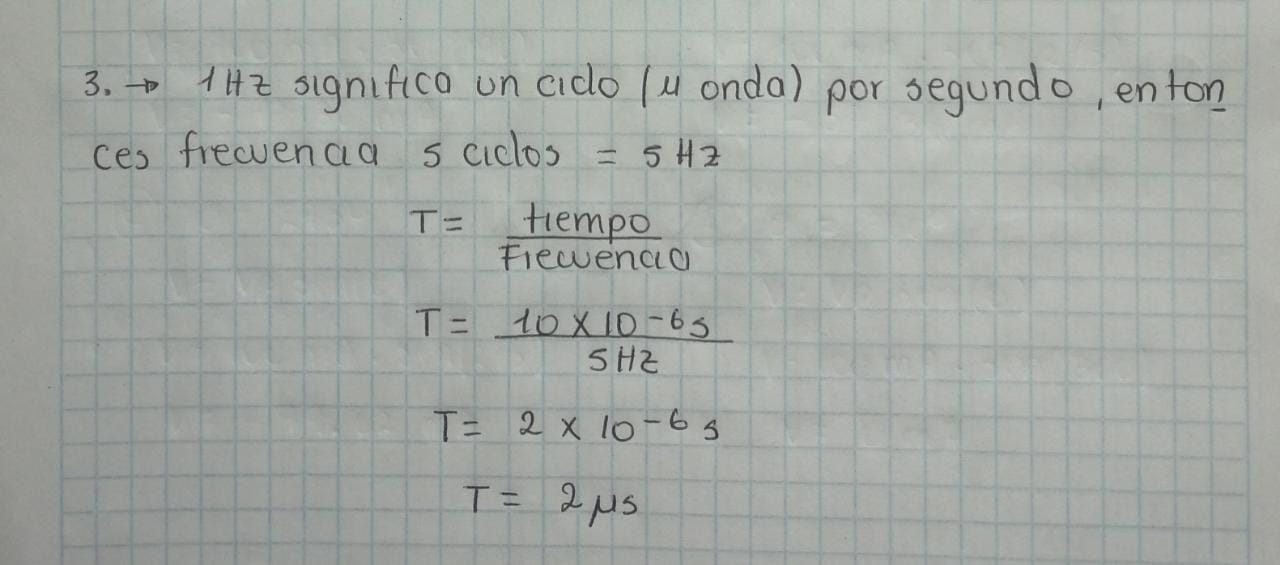 3. → 1 Hz significa un ciclo (u onda) por segundo, enton
ces frecuencia 5 ciclos = 5 Hz
T = tiempo
Frecuencia
T = 10 x 10 -6 s
5 Hz
T = 2 x 10 -6 s
T = 2 μs